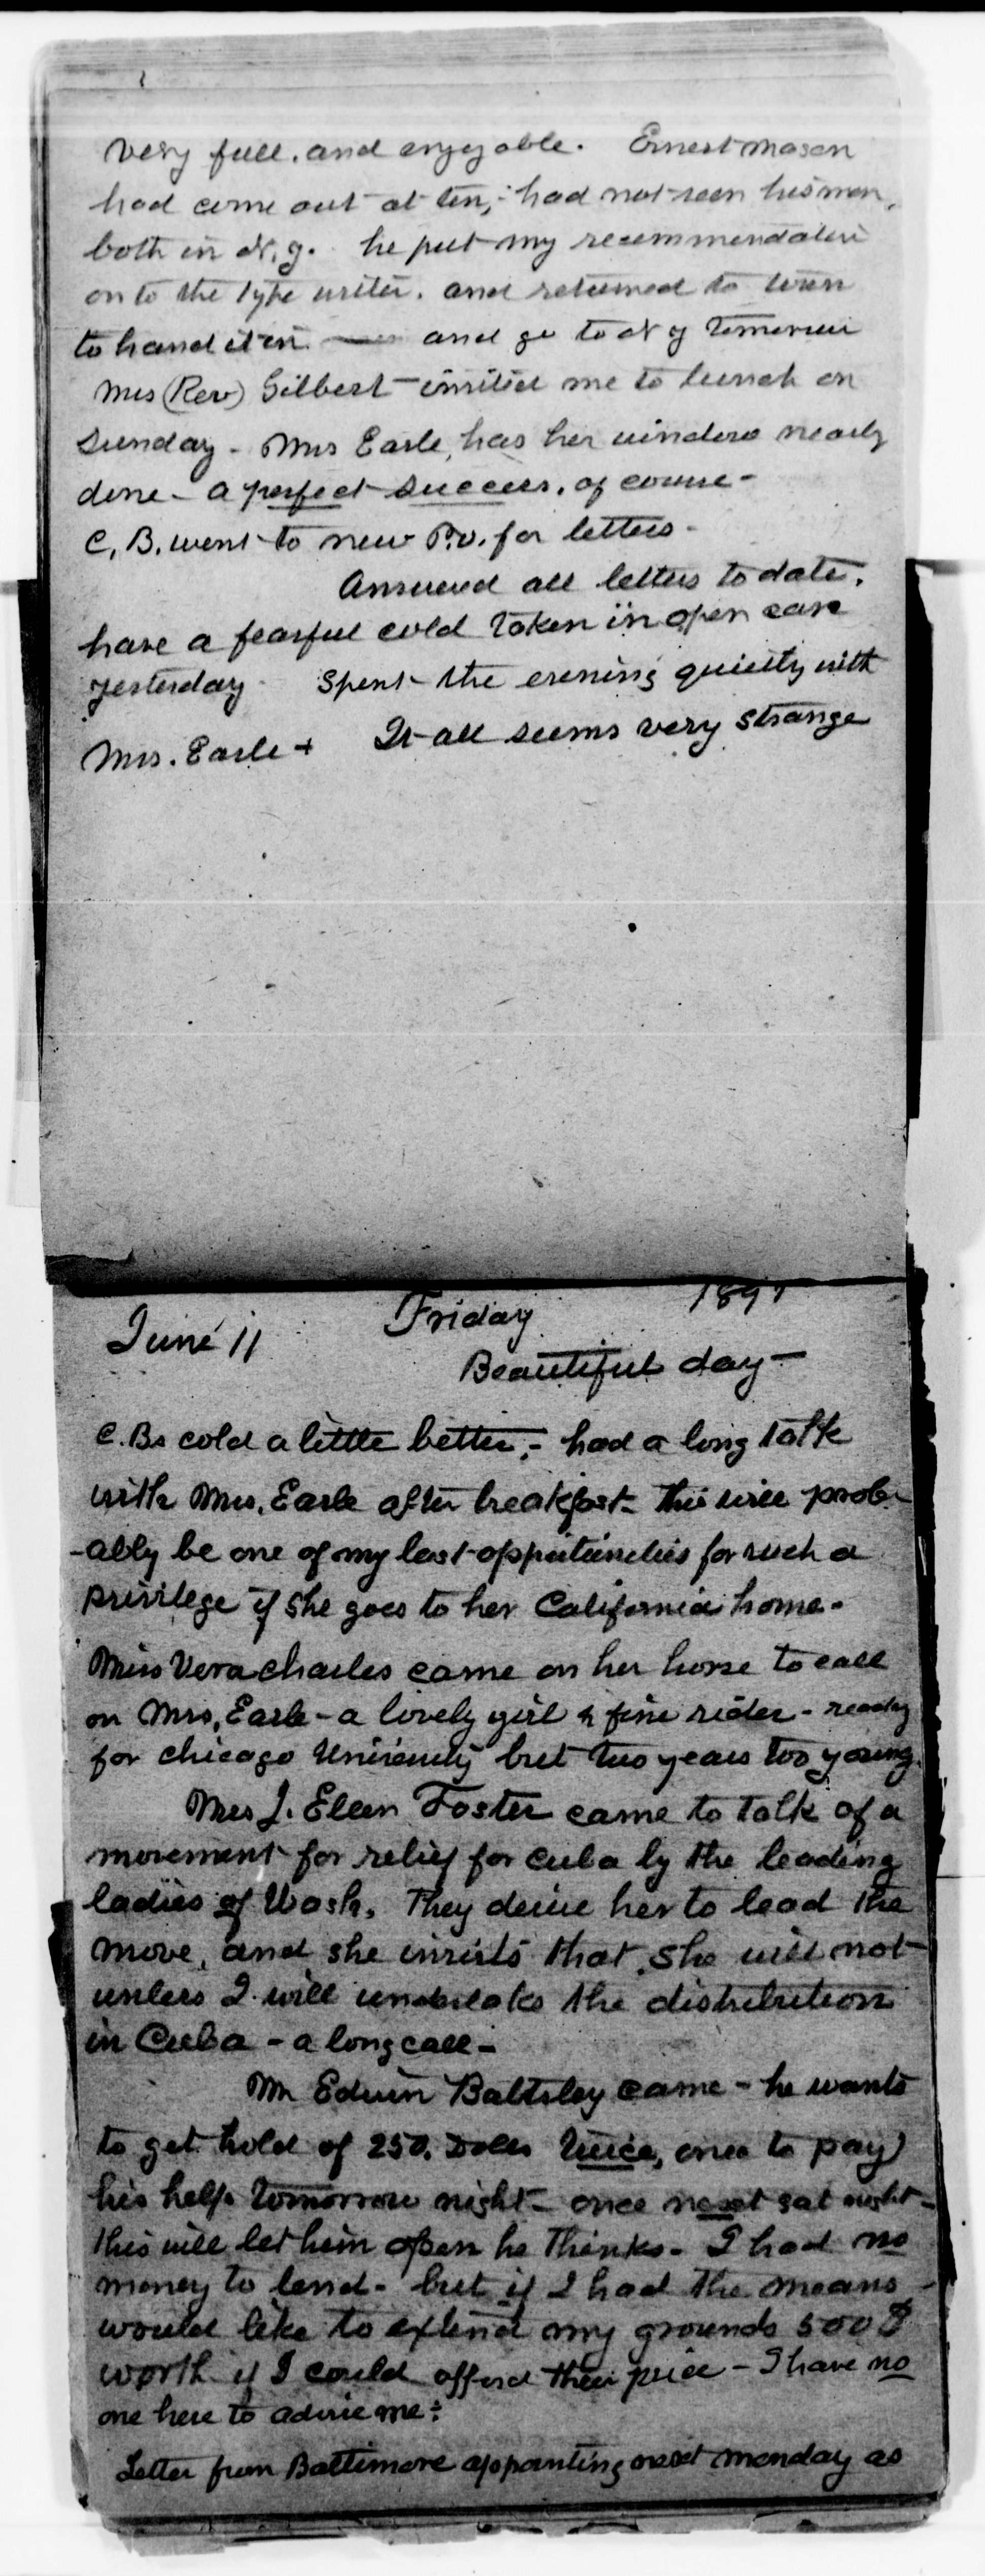 very full, and enjoyable. Ernest Mason
had come out at ten, - had not seen his men,
both in N.Y. he put my recommendation
on to the type writer. and returned to town
to hand it in — and go to N Y tomorrow
Mrs (Rev) Gilbert invited me to lunch on
Sunday - Mrs Earle, has her windows nearly
done - a perfect success, of course -
C. B. went to new P.O. for letters -
Answered all letters to date.
have a fearful cold taken in open cars
yesterday - Spent the evening quietly with
Mrs. Earle + It all seems very strange
June 11 Friday 1897
Beautiful day -
C. Bs cold a little better, - had a long talk
with Mrs. Earle after breakfast - this will prob-
-ably be one of my last opportunities for such a
privilege if she goes to her California home -
Miss Vera Charles came on her horse to call
on Mrs. Earle - a lovely girl & fine rider - ready
for Chicago University but two years too young.
Mrs J. Ellen Foster came to talk of a
movement for relief for Cuba by the leading
ladies of Wash. They desire her to lead the
move, and she insists that she will not
unless I will undertake the distribution
in Cuba - a long call -
Mr Edwin Baltzley came - he wants
to get hold of 250. Dolls twice, once to pay
his help tomorrow night - once next sat night -
this will let him open he thinks - I had no
money to lend - but if I had the means -
would like to extend my grounds 500 $
worth if I could afford their price - I have no
one here to advise me:
Letter from Baltimore appointing next Monday as